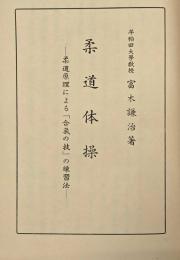 早稲田大學教授 富木謙治著
柔道体操
―柔道原理による「合氣の技」の練習法―